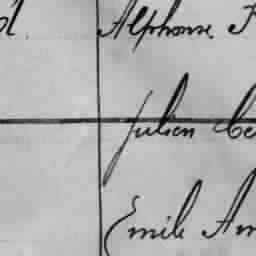 Alphonse
Julien
Emile Am